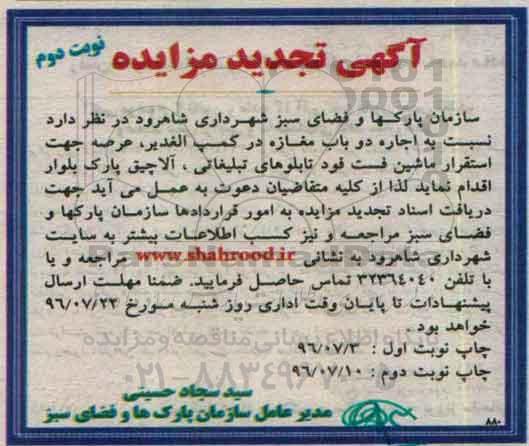 نوبت دوم
آگهی تجدید مزایده
سازمان پارکها و فضای سبز شهرداری شاهرود در نظر دارد
نسبت به اجاره دو باب مغازه در کمپ الغدیر، عرصه جهت
استقرار ماشین فست فود تابلوهای تبلیغاتی ، آلاچیق پارک بلوار
اقدام نماید لذا از کلیه متقاضیان دعوت به عمل می آید جهت
دریافت اسناد تجدید مزایده به امور قراردادها سازمان پارکها و
فضای سبز مراجعه و نیز کسب اطلاعات بیشتر به سایت
شهرداری شاهرود به نشانی www.shahrood.ir مراجعه و یا
با تلفن ۳۲۳۶۴۰۴۰ تماس حاصل فرمایید. ضمنا مهلت ارسال
پیشنهادات تا پایان وقت اداری روز شنبه مورخ ۹۶/۰۷/۲۲
خواهد بود .
چاپ نوبت اول : ۹۶/۰۷/۳
چاپ نوبت دوم : ۹۶/۰۷/۱۰
سید سجاد حسینی
مدیر عامل سازمان پارک ها و فضای سبز
۸۸۰